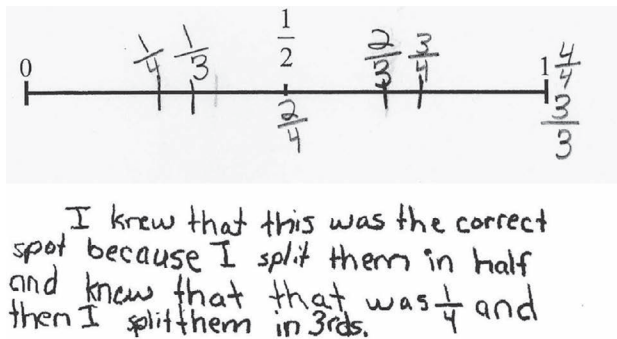 0 1/4 1/3 1/2 2/3 3/4 1 4/4
2/4 3/3
I knew that this was the correct
spot because I split them in half
and knew that that was 1/4 and
then I split them in 3rds.